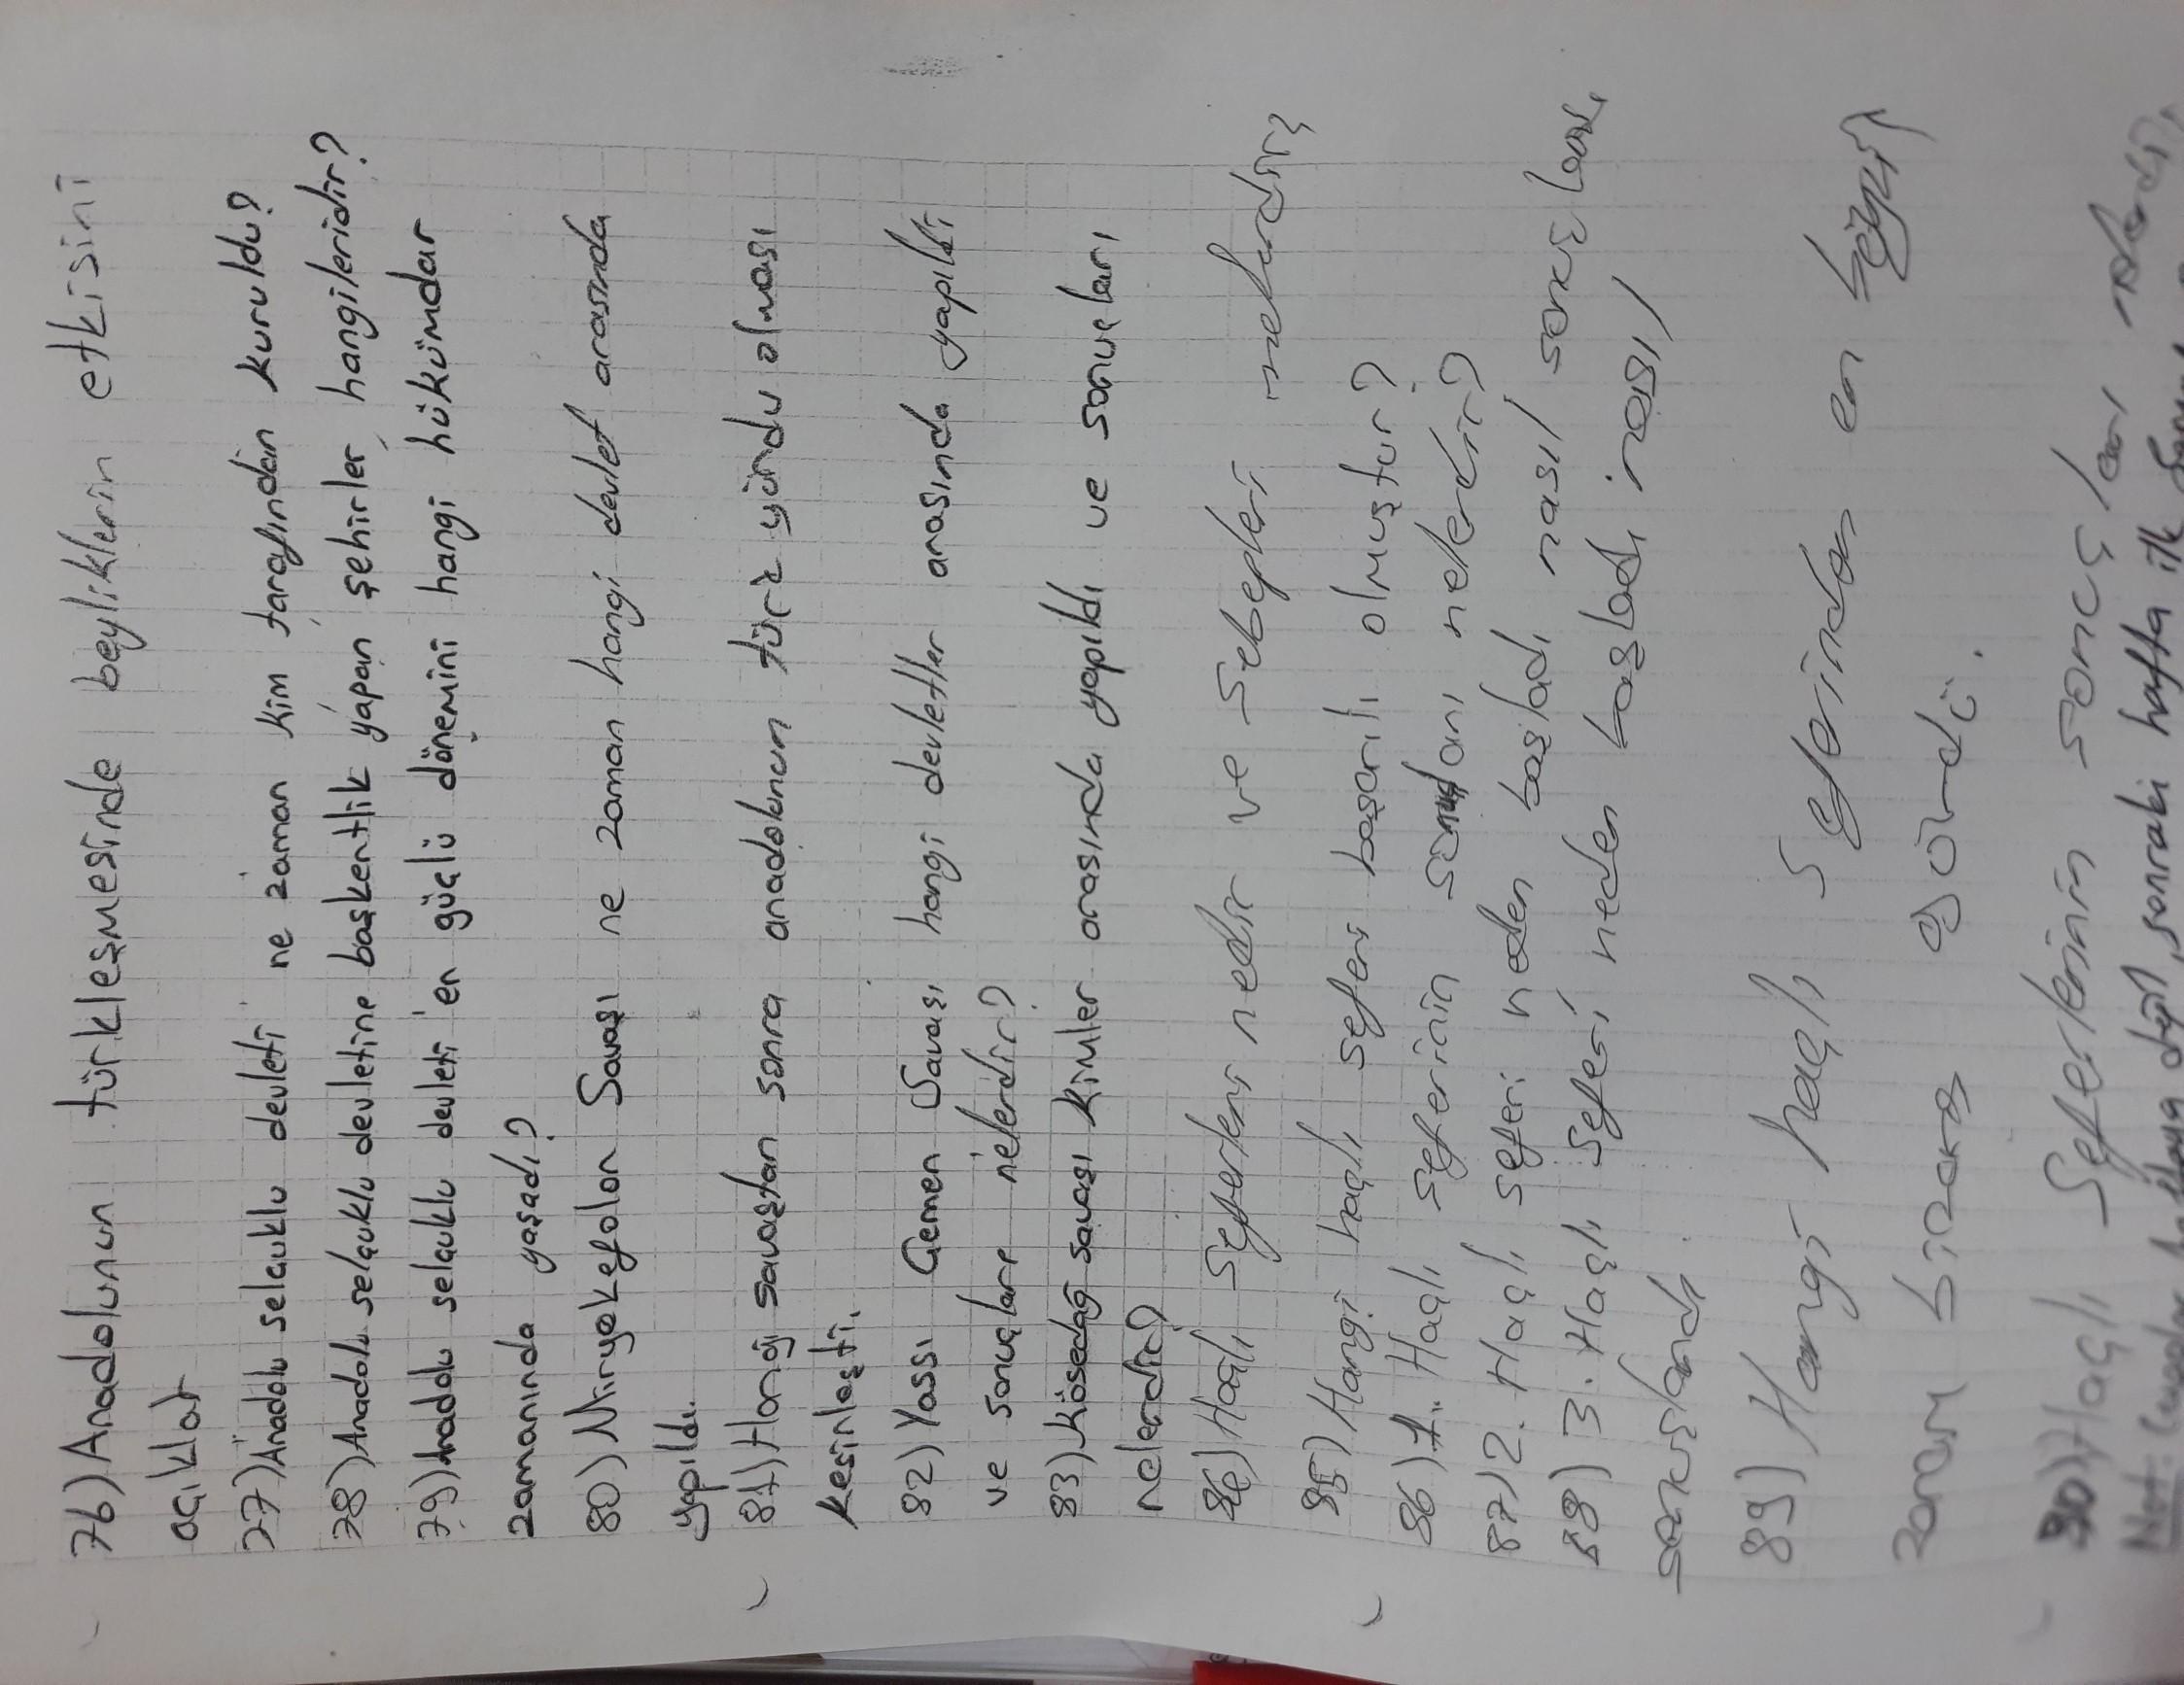 76) Anadolunun türkleşmesinde beyliklerin etkisini
açıklat
77) Anadolu selcuklu devleti ne zaman kim tarafından kuruldu?
78) Anadolu selçuklu devletine başkentlik yapan şehirler hangileridir?
79) Anadolu selçuklu devleti en güçlü dönemini hangi hükümdar
zamanında yaşadı?
80) Miryekefolon Savaşı ne zaman hangi devlet arasında
yapıldı.
81) Hangi savaştan sonra anadolunun türk yurdu olması
kesinleşti.
82) Yassı Çemen Savaşı hangi devletler arasında yapıldı
ve sonuçları nelerdir?
83) Kösedağ savaşı kimler arasında yapıldı ve sonuçları
nelerdir?
84) Haçlı Seferleri nedir ve Sebepleri nelerdir?
85) Hangi haçlı seferi başarılı olmuştur?
86) 1. Haçlı seferinin nelerdir?
87) 2. Haçlı seferi neden başladı nasıl sonuçlandı
88) 3. Haçlı Seferi neden başladı nasıl
sonuçlandı.
89) Hangi haçlı Seferinden en büyük
zararı bizans gördü.
90) Haçlı Seferlerinin sonuçları nelerdir
Not: sonraki hafta ilk